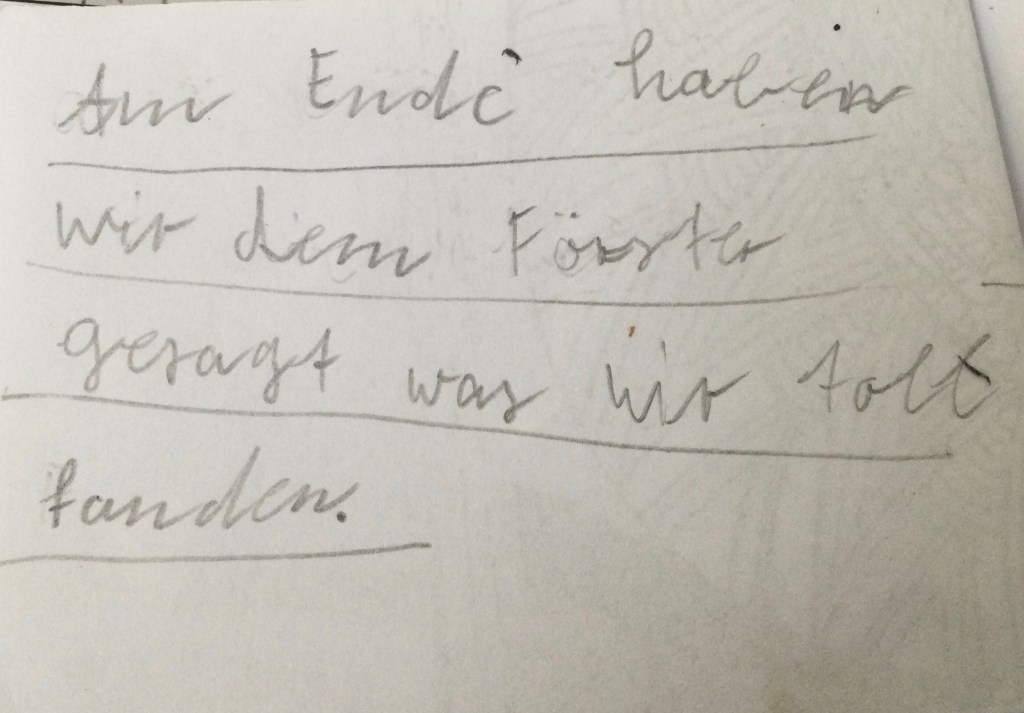 Am Ende haben
wir dem Förster
gesagt was wir toll
fanden.